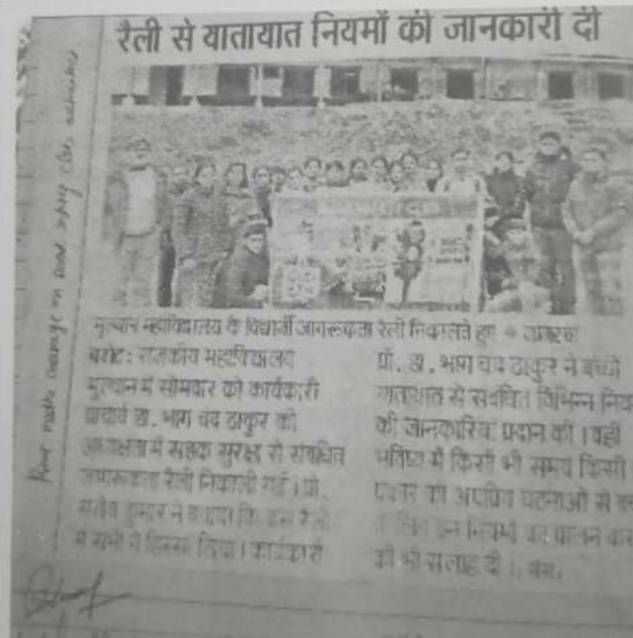 रैली से यातायात नियमों की जानकारी दी
मुल्थान महाविद्यालय के विद्यार्थी जागरूकता रैली निकालते हुए ● जागरण
बरोट: राजकीय महाविद्यालय
मुल्थान में सोमवार को कार्यकारी
प्राचार्य डा. भाग चंद ठाकुर की
अध्यक्षता में सड़क सुरक्षा से संबंधित
जागरूकता रैली निकाली गई। प्रो.
कुमार ने बताया कि इस रैली
में सभी ने हिस्सा लिया। कार्यकारी
प्रो. डा. भाग चंद ठाकुर ने बच्चों
यातायात से संबंधित विभिन्न निय
की जानकारियां प्रदान की। वहीं
भविष्य में किसी भी समय किसी
प्रकार की अप्रिय घटनाओं से
इन नियमों का पालन
की भी सलाह दी।
Print media coverage on Road safety club activities